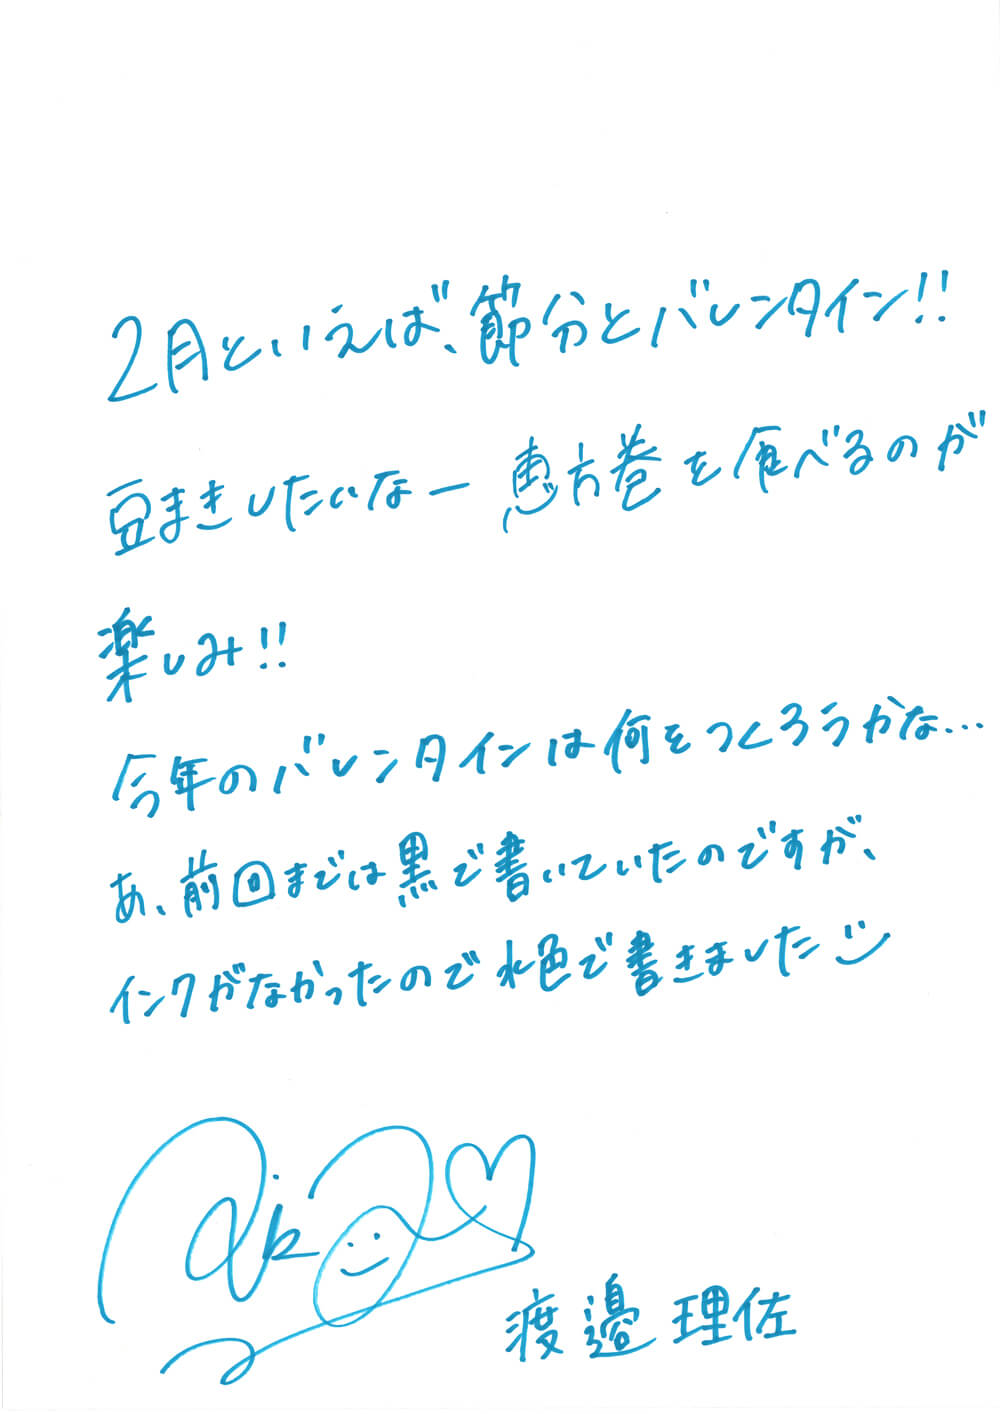 2月といえば、節分とバレンタイン!!
豆まきしたいなー 恵方巻を食べるのが
楽しみ!!
今年のバレンタインは何をつくろうかな...
あ、前回までは黒で書いていたのですが、
インクがなかったので水色で書きました
渡邉 理佐